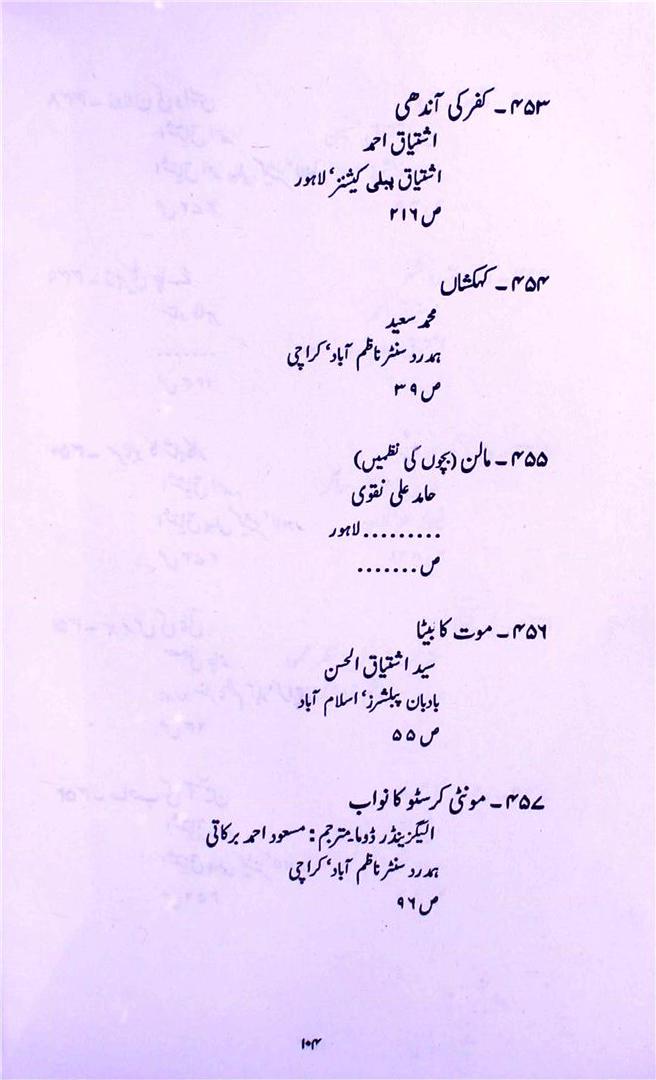 ۴۵۳ ۔ کفر کی آندھی
اشتیاق احمد
اشتیاق پبلی کیشنز، لاہور
ص ۲۱۶
۴۵۴ ۔ کہکشاں
محمد سعید
ہمدرد سنٹر ناظم آباد، کراچی
ص ۳۹
۴۵۵ ۔ مالن (بچوں کی نظمیں)
حامد علی نقوی
......... لاہور
ص .......
۴۵۶ ۔ موت کا بیٹا
سید اشتیاق الحسن
بادبان پبلشرز، اسلام آباد
ص ۵۵
۴۵۷ ۔ مونٹی کرسٹو کا نواب
الیگزینڈر ڈوما۔ مترجم: مسعود احمد برکاتی
ہمدرد سنٹر ناظم آباد، کراچی
ص ۹۶
۱۰۴